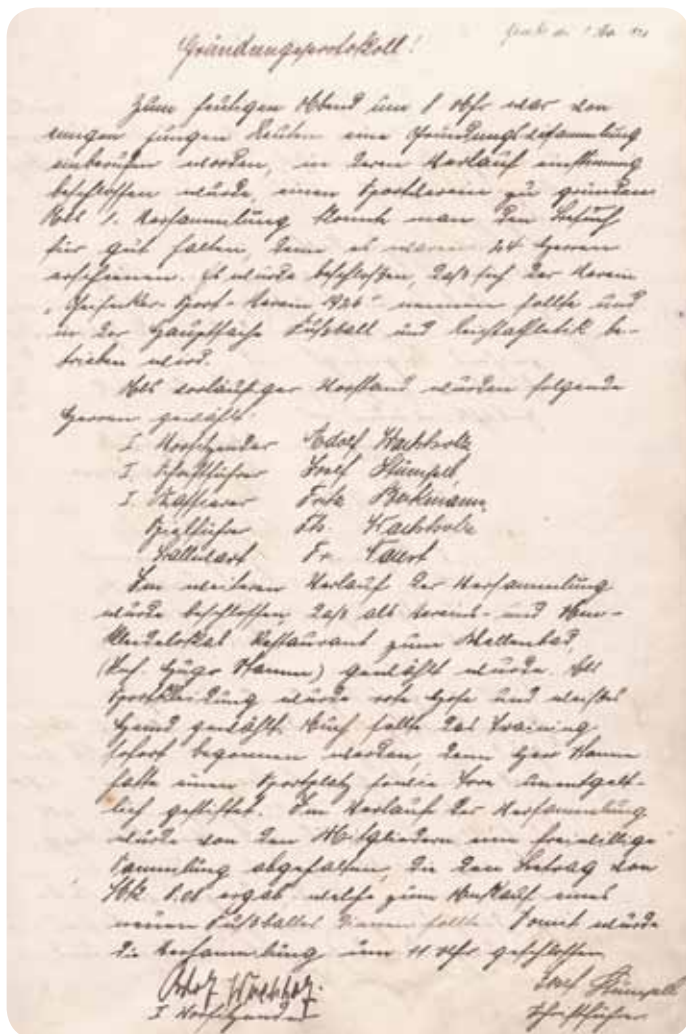 Gründungsprotokoll!
Zum heutigen Abend um 8 Uhr war von
einigen jungen Leuten eine Gründungsversammlung
einberufen worden, in deren Verlauf einstimmig
beschlossen wurde, einen Sportverein zu gründen.
Als 1. Versammlung konnte man den Besuch
für gut halten, denn es waren 24 Herren
erschienen. Es wurde beschloßen, daß sich der Verein
Sport-Verein 1926" nennen sollte und
in der Hauptsache Fußball und Leichtathletik be-
trieben wird.
Als vorläufiger Vorstand wurden folgende
Herren gewählt:
I. Vorsitzender Adolf Wachholz
I. Schriftführer Josef Stümpell
I. Kassierer Fritz Beckmann
Spielführer Fr. Wachholz
Ballwart Fr.
Im weiteren Verlauf der Versammlung
wurde beschlossen, daß als Vereins- und Um-
kleidelokal Restaurant zum Wellenbad,
(Inh. Hugo Hamm) gewählt wurde. Als
Sportkleidung wurde rote Hose und weißes
Hemd gewählt. Auch sollte das Training
sofort begonnen werden, denn Herr Hamm
hatte einen Sportplatz sowie Tore unentgelt-
lich gestiftet. Im Verlauf der Versammlung
wurde von den Mitgliedern eine freiwillige
Sammlung abgehalten, die den Betrag von
Mk ergab, welche zum Ankauf eines
neuen Fußballes dienen sollte. Somit wurde
die Versammlung um 11 Uhr geschlossen
Adolf Wachholz Josef Stümpell
I Vorsitzender Schriftführer